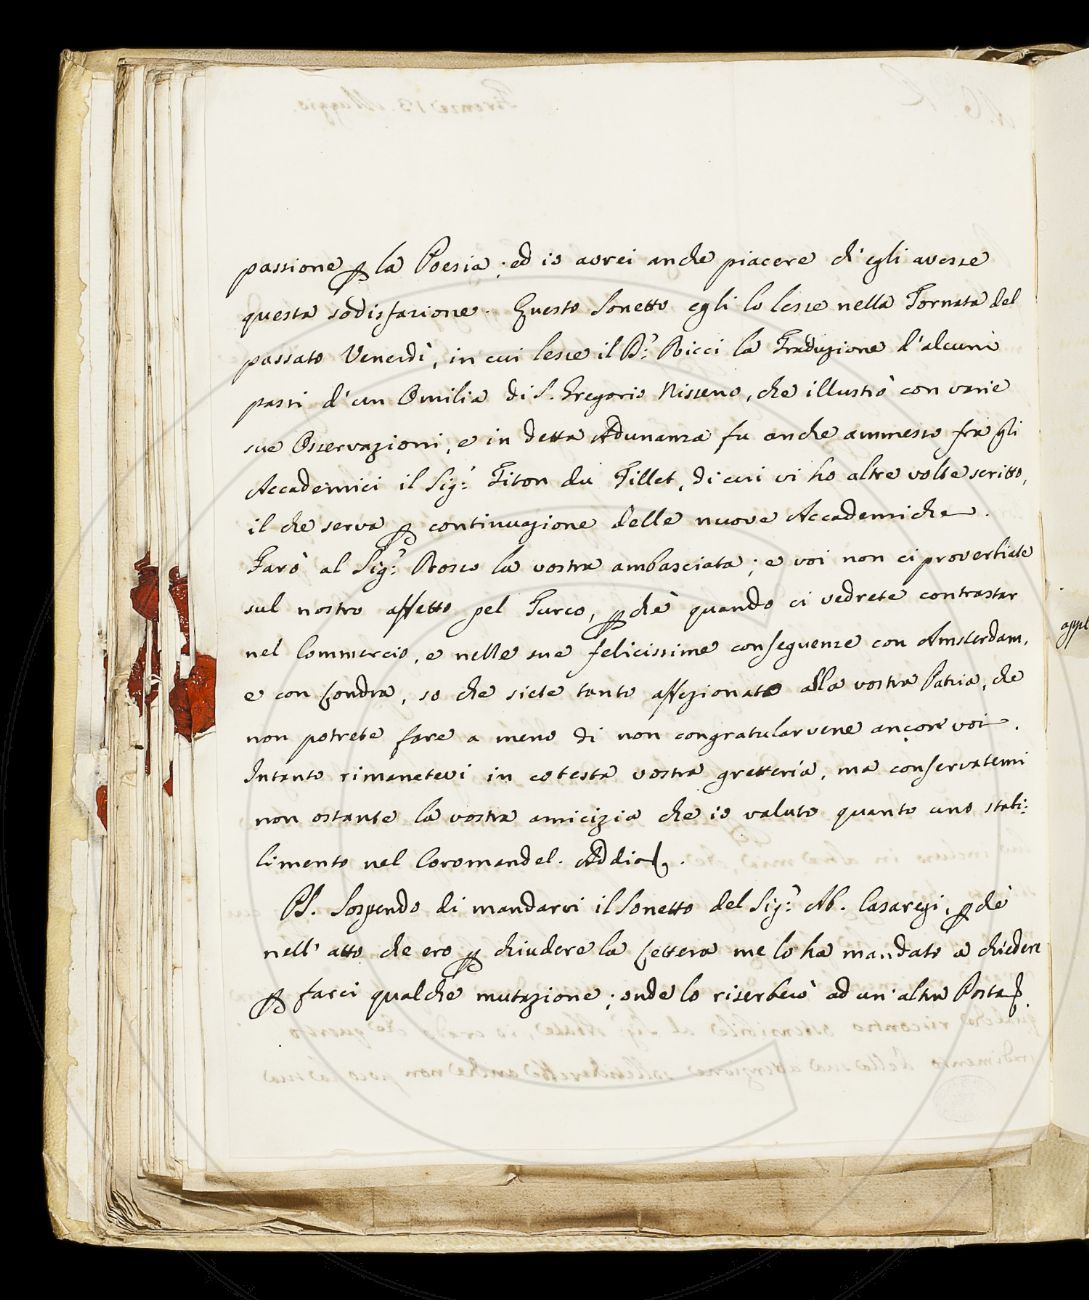 passione p la Poesia; ed io avrei anche piacere ch'egli avesse
questa sodisfazione. Questo Sonetto egli lo lesse nella Tornata del
passato Venerdì, in cui lesse il P.ʳ Ricci la Traduzione d'alcuni
passi d'un Omilia di S. Gregorio Nisseno, che illustrò con varie
sue Osservazioni, e in detta Adunanza fu anche ammesso fra gli
Accademici il Sig.ʳ Titon du Tillet, di cui vi ho altre volte scritto,
il che serva p continuazione delle nuove Accademiche.
Farò al Sig.ʳ Bosco la vostra ambasciata; e voi non ci proverbiate
sul nostro affetto pel Turco, pchè quando ci vedrete contrastar
nel Commercio, e nelle sue felicissime conseguenze con Amsterdam,
e con Londra, so che siete tanto affezionato alla vostra Patria, che
non potrete fare a meno di non congratularvene ancor voi.
Intanto rimanetevi in cotesta vostra gretteria, ma conservatemi
non ostante la vostra amicizia che io valuto quanto uno stabi:
limento nel Coromandel. Addio.
PS. Sospendo di mandarvi il Sonetto del Sig.ʳ Ab. Casaregi, pchè
nell'atto che ero p chiudere la Lettera me lo ha mandato a chiedere
p farci qualche mutazione; onde lo riserberò ad un'altra Posta.